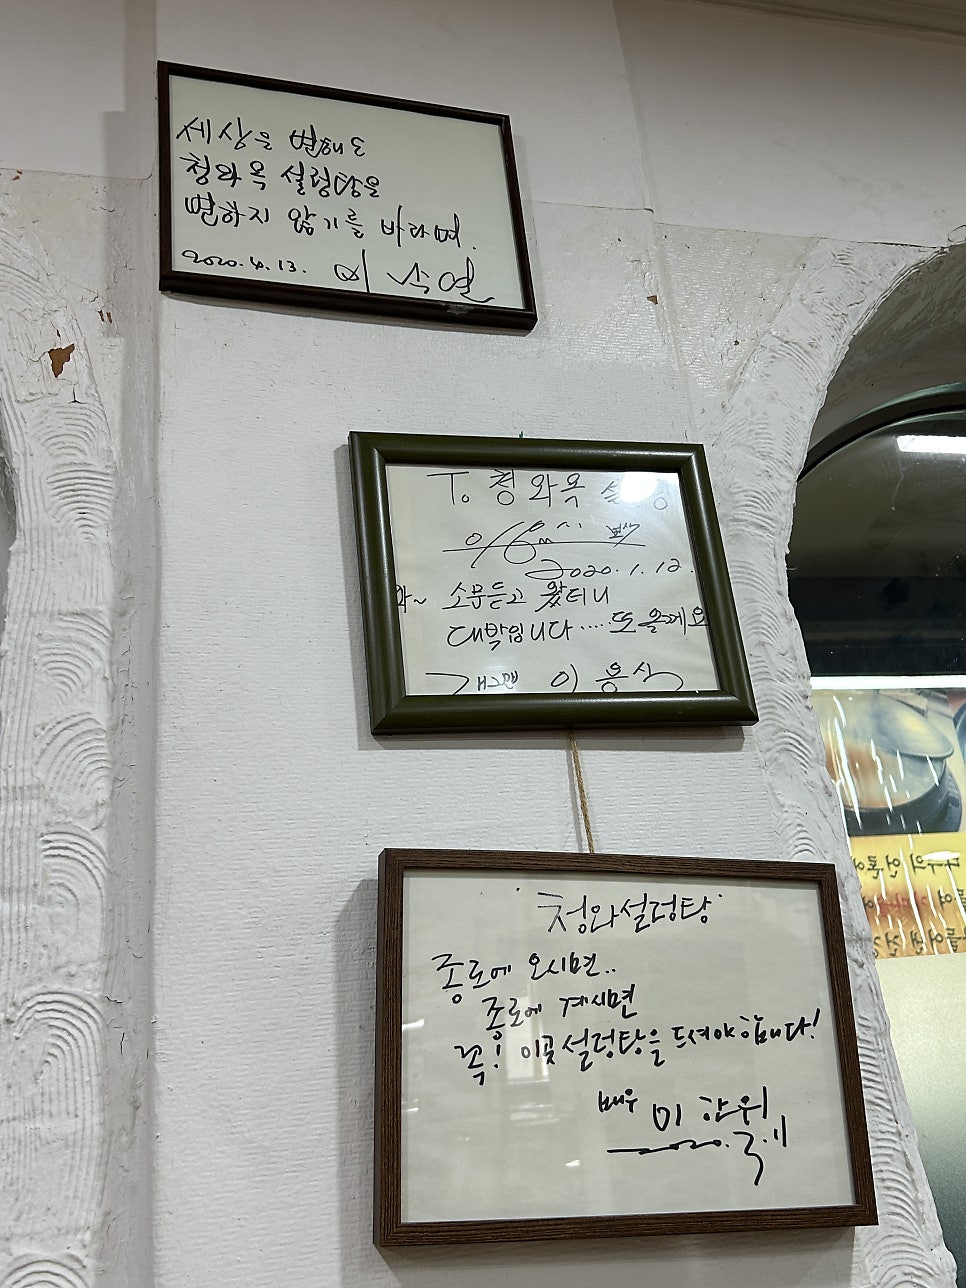 세상은 변해도
청와옥 설렁탕은
변하지 않기를 바라며.
2020. 4. 13.
To 청와옥
2020. 1. 12.
와~ 소문듣고 왔더니
대박입니다..... 또 올께요
개그맨 이용식
'청와설렁탕'
종로에 오시면..
종로에 계시면
꼭! 이곳 설렁탕을 드셔야 합니다!
배우 이한위
2020.